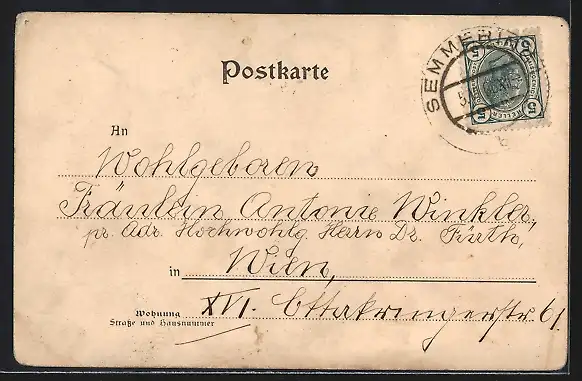 Postkarte
SEMMERING
5
5
5
5
HELLER
An
Wohlgeboren
Fräulein Antonie Winkler,
pr. Adr. Hochwohlg. Herrn Dr. Fürth,
in Wien,
Wohnung
Straße und Hausnummer
XVI. Ottakringerstr 61.